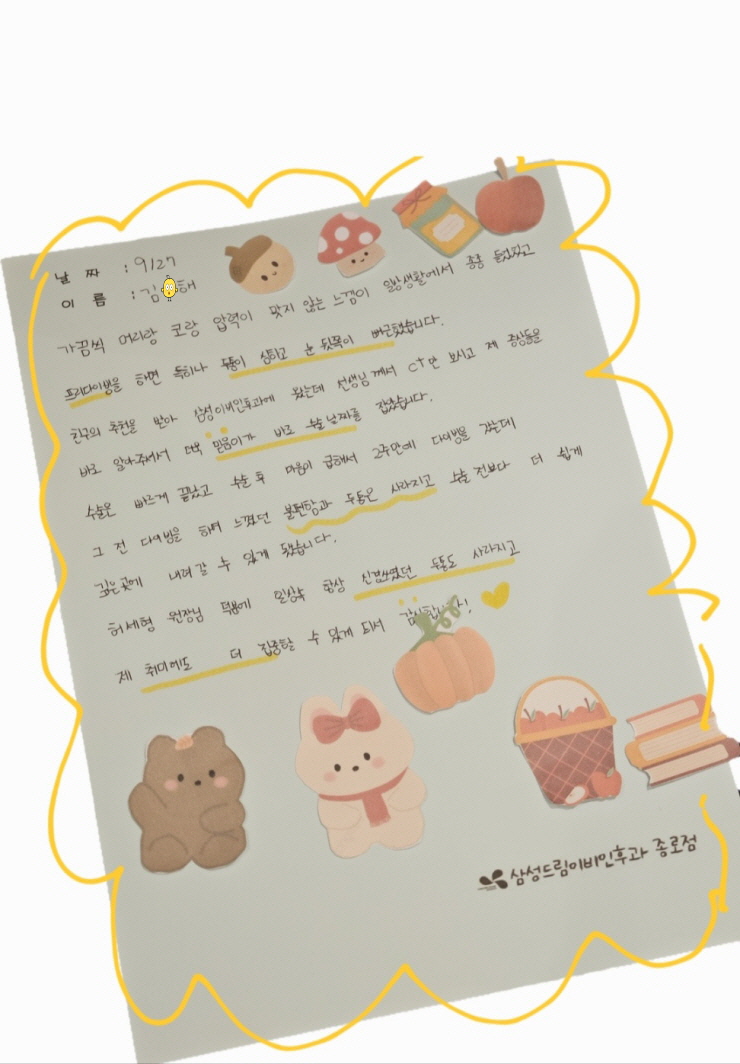 날 짜 : 9/27
이 름 : 김 해
가끔씩 머리랑 코랑 압력이 맞지 않는 느낌이 일상생활에서 종종 들었었고
프리다이빙을 하면 특하나 두통이 심하고 눈 뒷쪽이 뻐근했습니다.
친구의 추천을 받아 삼성이비인후과에 왔는데 선생님께서 CT만 보시고 제 증상들을
바로 알아주셔서 더욱 믿음이가 바로 수술날짜를 잡았습니다.
수술은 빠르게 끝났고 수술 후 마음이 급해서 2주만에 다이빙을 갔는데
그 전 다이빙을 하며 느꼈던 불편함과 두통은 사라지고 수술 전보다 더 쉽게
깊은곳에 내려갈 수 있게 됐습니다.
허세형 원장님 덕분에 일상속 항상 신경쓰였던 두통도 사라지고
제 취미에도 더 집중할 수 있게 되서 감사합니다!
삼성드림이비인후과 종로점